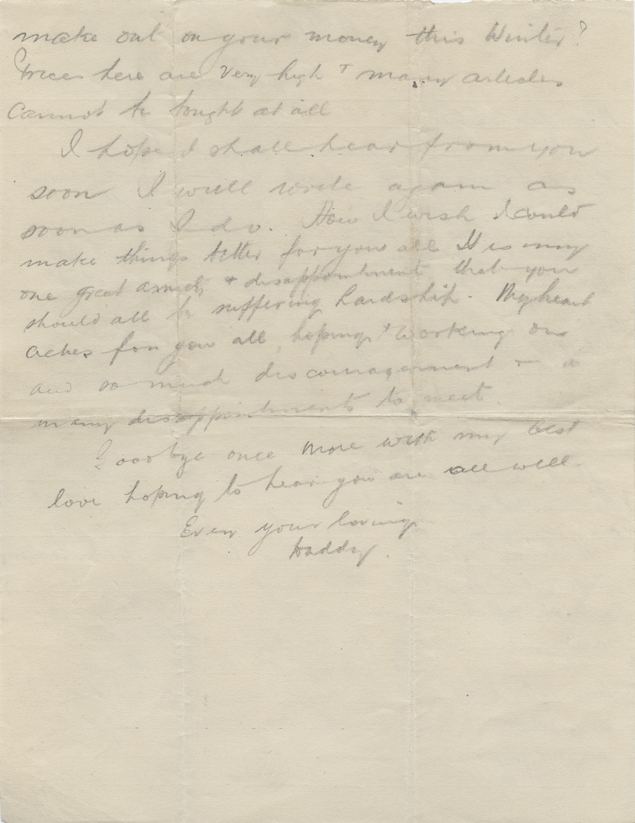 make out on your money this Winter?
Prices here are very high + many articles
cannot be bought at all
I hope I shall hear from you
soon I will write again as
soon as I do. How I wish I could
make things better for you all It is my
one great & disappointment that you
should all be suffering hardship. My heart
aches for you all, hoping & working on
and so much discouragement + so
many disappointments to meet.
Goodbye once more with my best
love hoping to hear you are all well.
Ever your loving
Daddy.